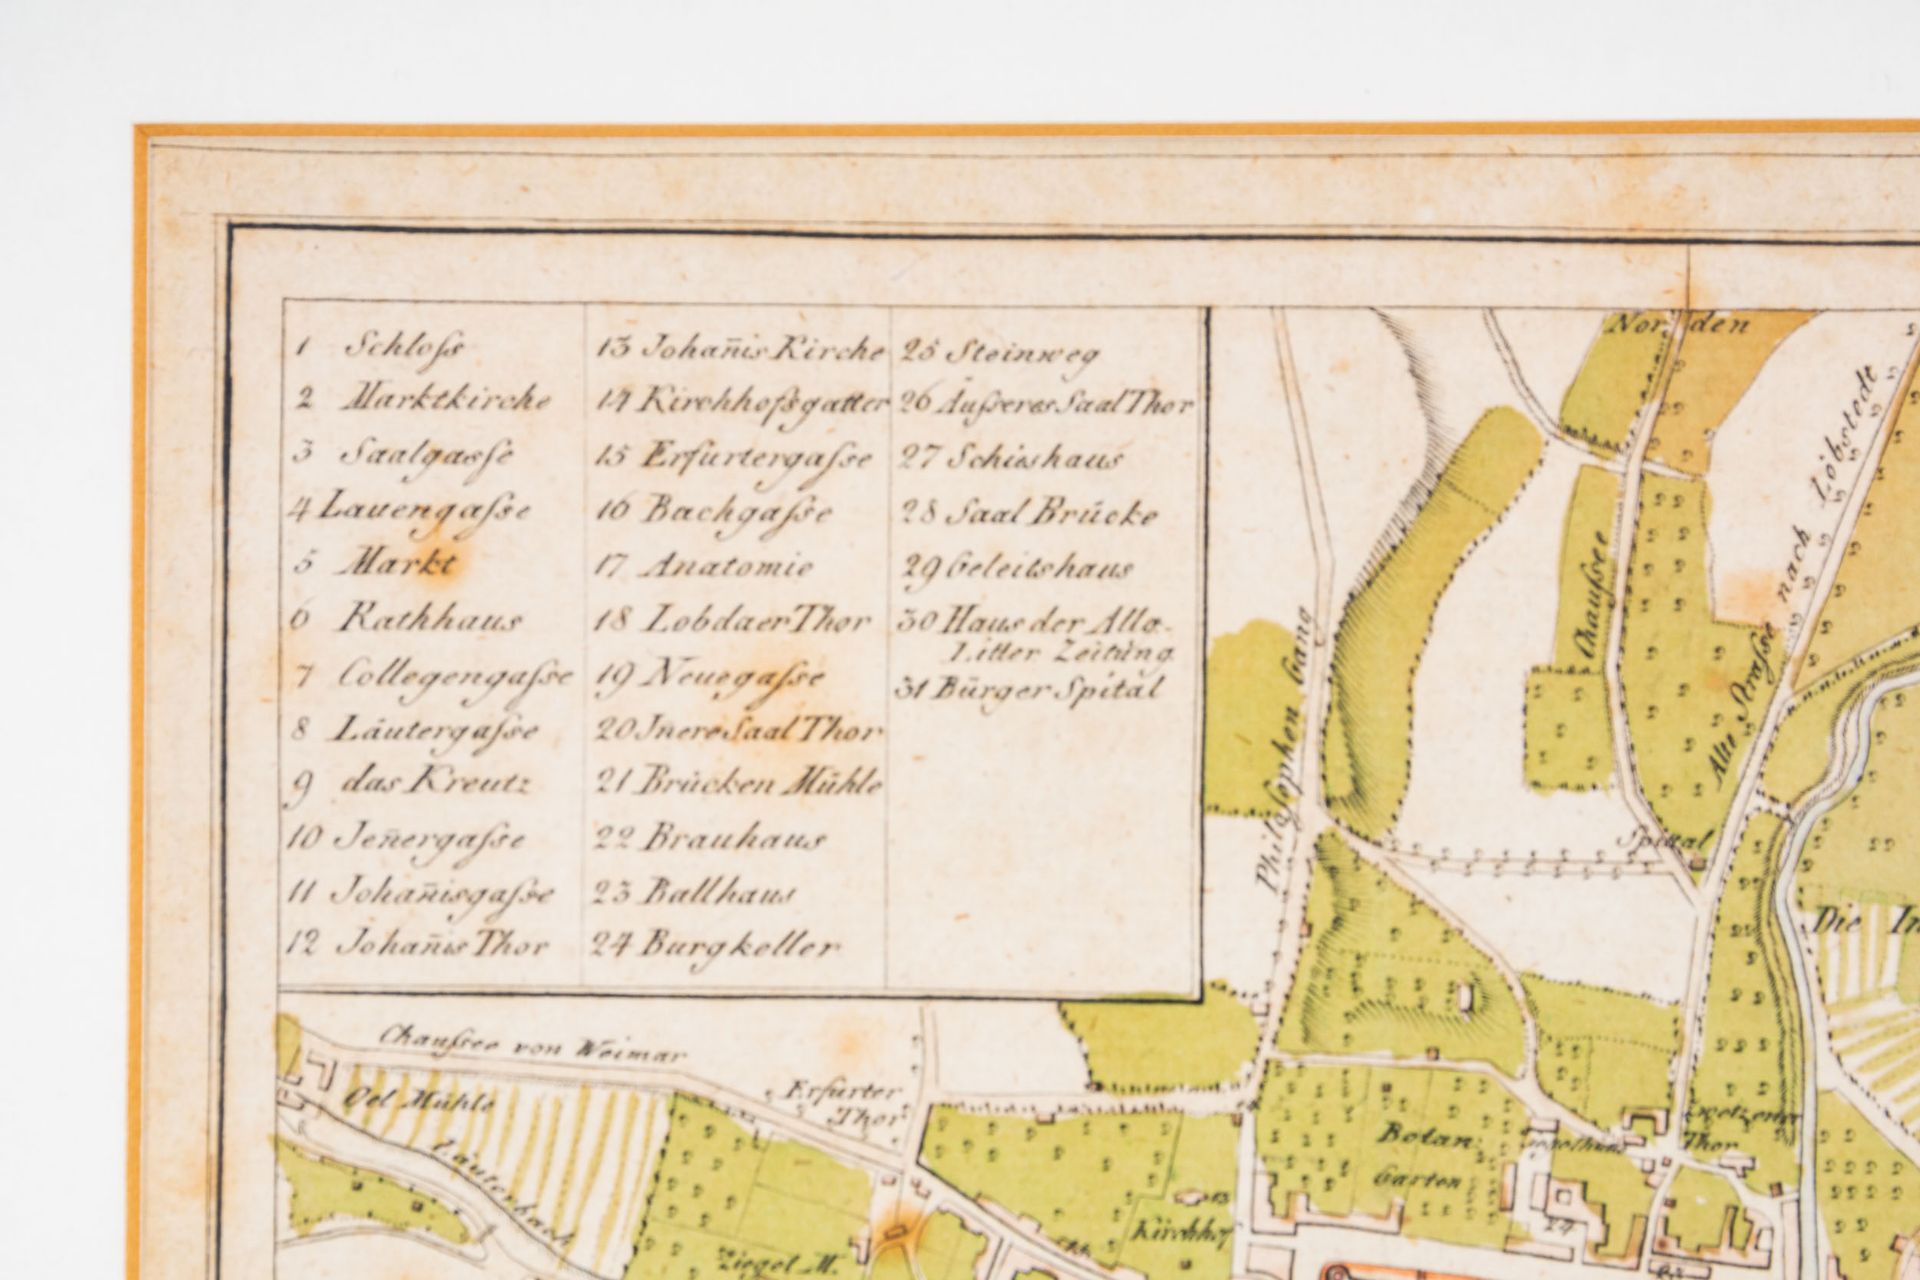 1 Schloſs
2 Marktkirche
3 Saalgasſe
4 Lauengaſse
5 Markt
6 Rathhaus
7 Collegengaſse
8 Läutergaſse
9 das Kreutz
10 Jen̄ergaſse
11 Johan̄isgaſse
12 Johan̄is Thor
13 Johan̄is Kirche
14 Kirchhofsgatter
15 Erfurtergaſse
16 Bachgaſse
17 Anatomie
18 Lobdaer Thor
19 Neuegaſse
20 Jnere Saal Thor
21 Brücken Mühle
22 Brauhaus
23 Ballhaus
24 Burgkeller
25 Steinweg
26 Äuſseres Saal Thor
27 Schieshaus
28 Saal Brücke
29 Geleitshaus
30 Haus der Allg.
Litter Zeitüng
31 Bürger Spital
Norden
Chauſsee
Alte Straſse nach Löbstedt
Philosophen Gang
Spittal
Die
Chauſsee von Weimar
Oel Mühle
Läuterbach
Erfurter
Thor
Botan
Garten
Thor
Kirchhof
Ziegel M.